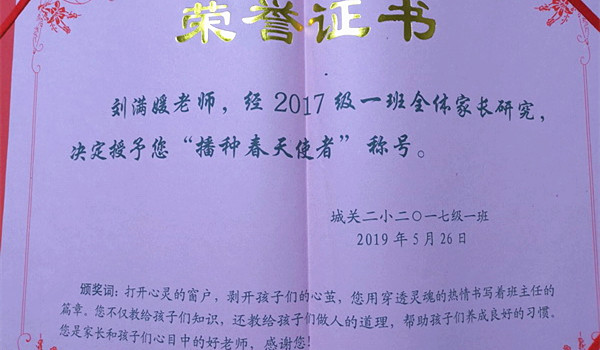 荣誉证书
刘满媛老师，经2017级一班全体家长研究，
决定授予您“播种春天使者”称号。
城关二小二〇一七级一班
2019年5月26日
颁奖词：打开心灵的窗户，剥开孩子们的心茧，您用穿透灵魂的热情书写着班主任的
篇章。您不仅教给孩子们知识，还教给孩子们做人的道理，帮助孩子们养成良好的习惯。
您是家长和孩子们心目中的好老师，感谢您！